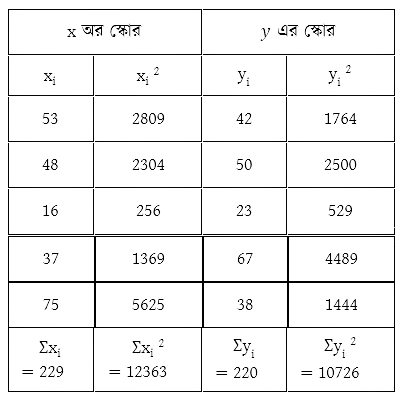 x অর স্কোর y এর স্কোর
xi xi 2 yi yi 2
53 2809 42 1764
48 2304 50 2500
16 256 23 529
37 1369 67 4489
75 5625 38 1444
Σxi Σxi 2 Σyi Σyi 2
= 229 = 12363 = 220 = 10726